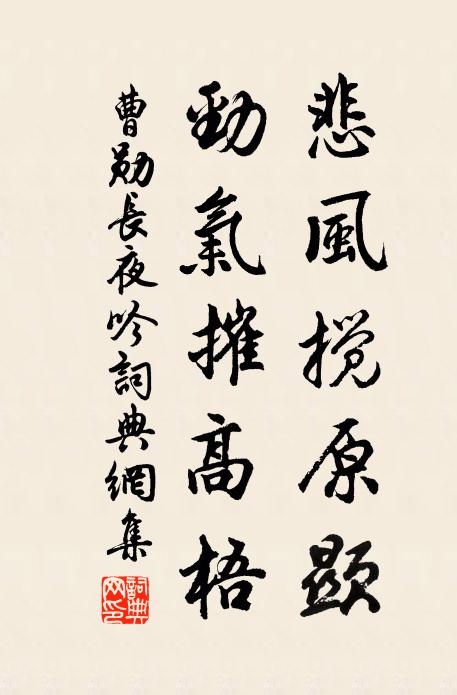 悲風攪原顯
勁氣摧高梧
曹勛長夜吟詞典網集
詞典
网印